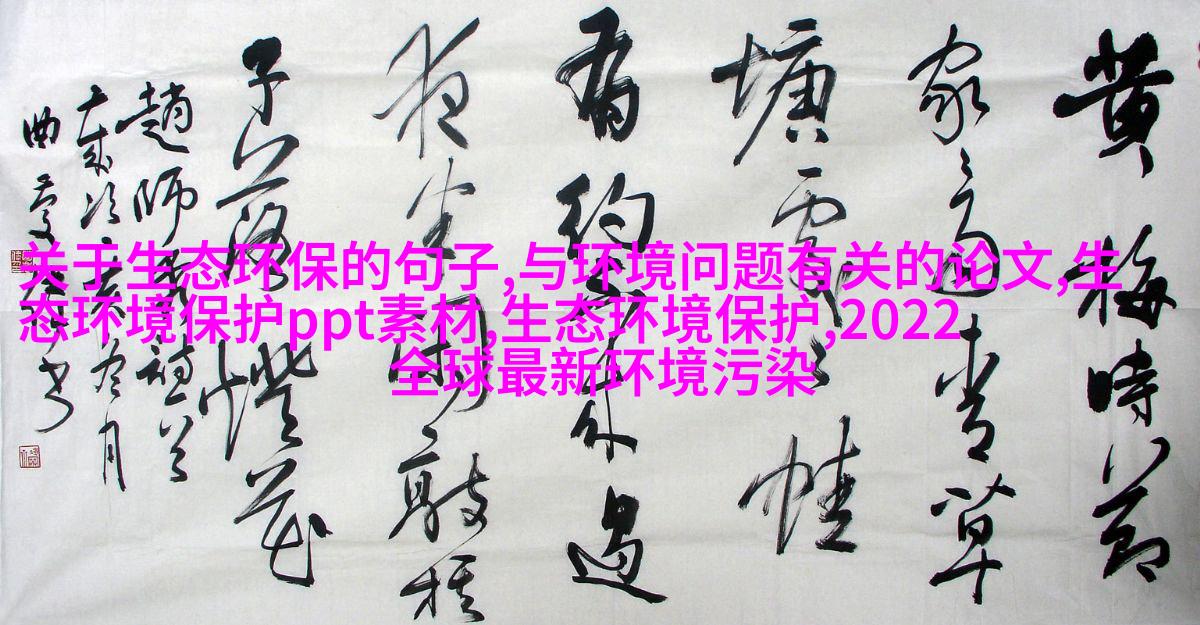 关于生态环保的句子,与环境问题有关的论文,生
态环境保护ppt素材,生态环境保护,2022
全球最新环境污染
黄梅時節
家々雨青草
塘處々蛙
有約不来過
夜半閑敲棋
子落燈花
趙師秀
冬月
曲